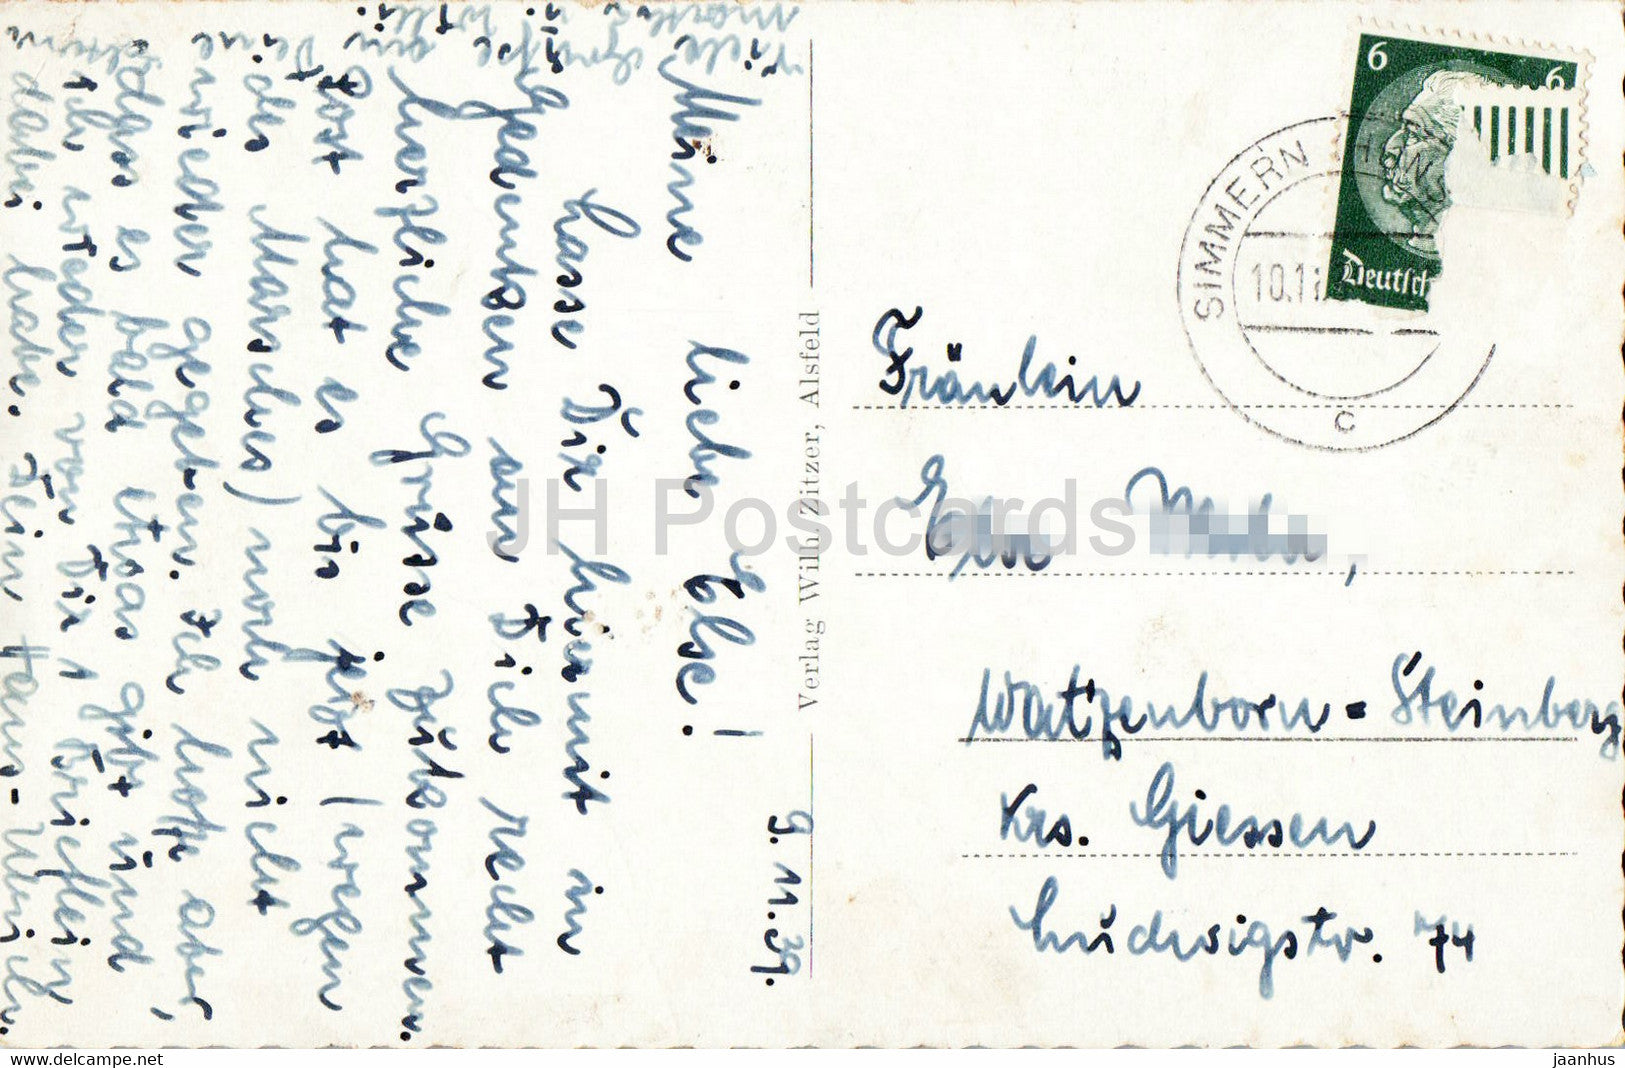 9. 11. 39.
Meine liebe Else!
Lasse Dir hiermit im
Gedenken an Dich recht
herzliche Grüsse zukommen.
Post hat es bis jetzt (wegen
des Marsches) noch nicht
wieder gegeben. Ich hoffe aber,
dass es bald etwas gibt und
ich wieder von Dir 1 Brieflein
dabei habe. Dein Hans-Ulrich.
Viele Grüsse an Deine Eltern
Martha u. Willi.
Verlag Wilh. Zitzer, Alsfeld
6
6
Deutsch
SIMMERN (HUNS
10.11.
c
Fräulein
Else
Watzenborn=Steinberg
Krs. Giessen
Ludwigstr. 74
JH Postcards
www.delcampe.net
jaanhus